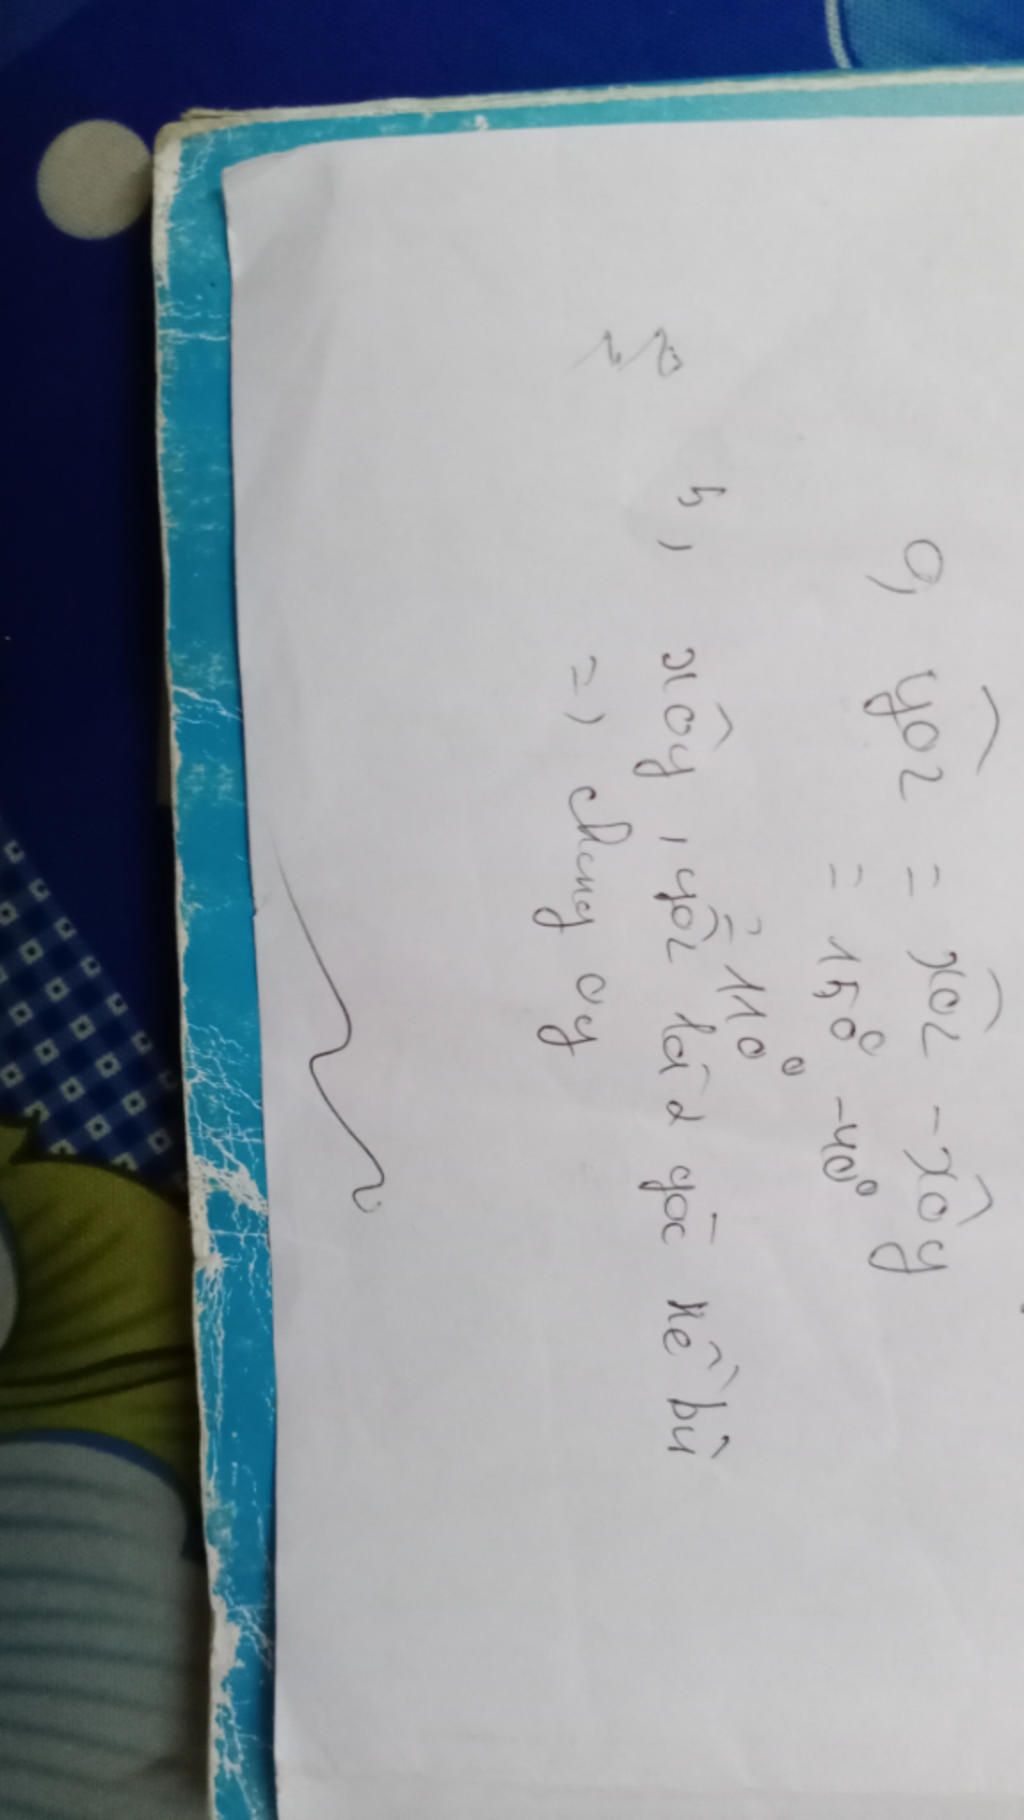 a, yoz = xoz - xoy
= 150° - 40°
= 110°
b, xoy, yoz là 2 góc kề bù
=) chung oy